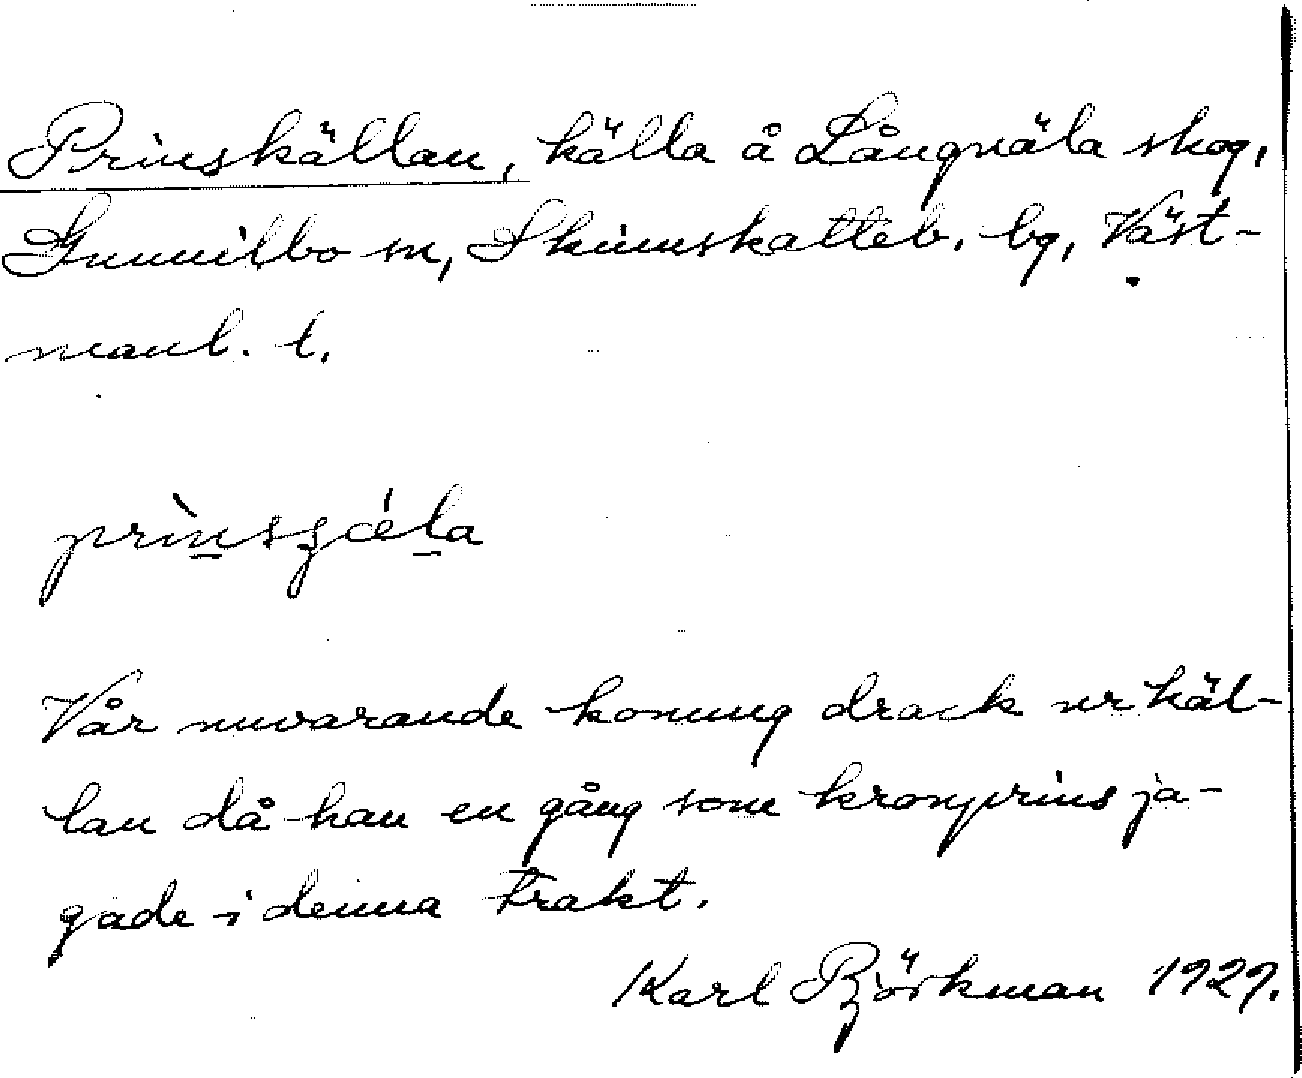 Prinskällan, källa å Långnäla skog,
Gunnilbo sn, Skinnskatteb. bg, Väst-
manl. l.
prìnsʂǽla
Vår nuvarande konung drack ur käl-
lan då han en gång som kronprins ja-
gade i denna trakt.
Karl Björkman 1929.